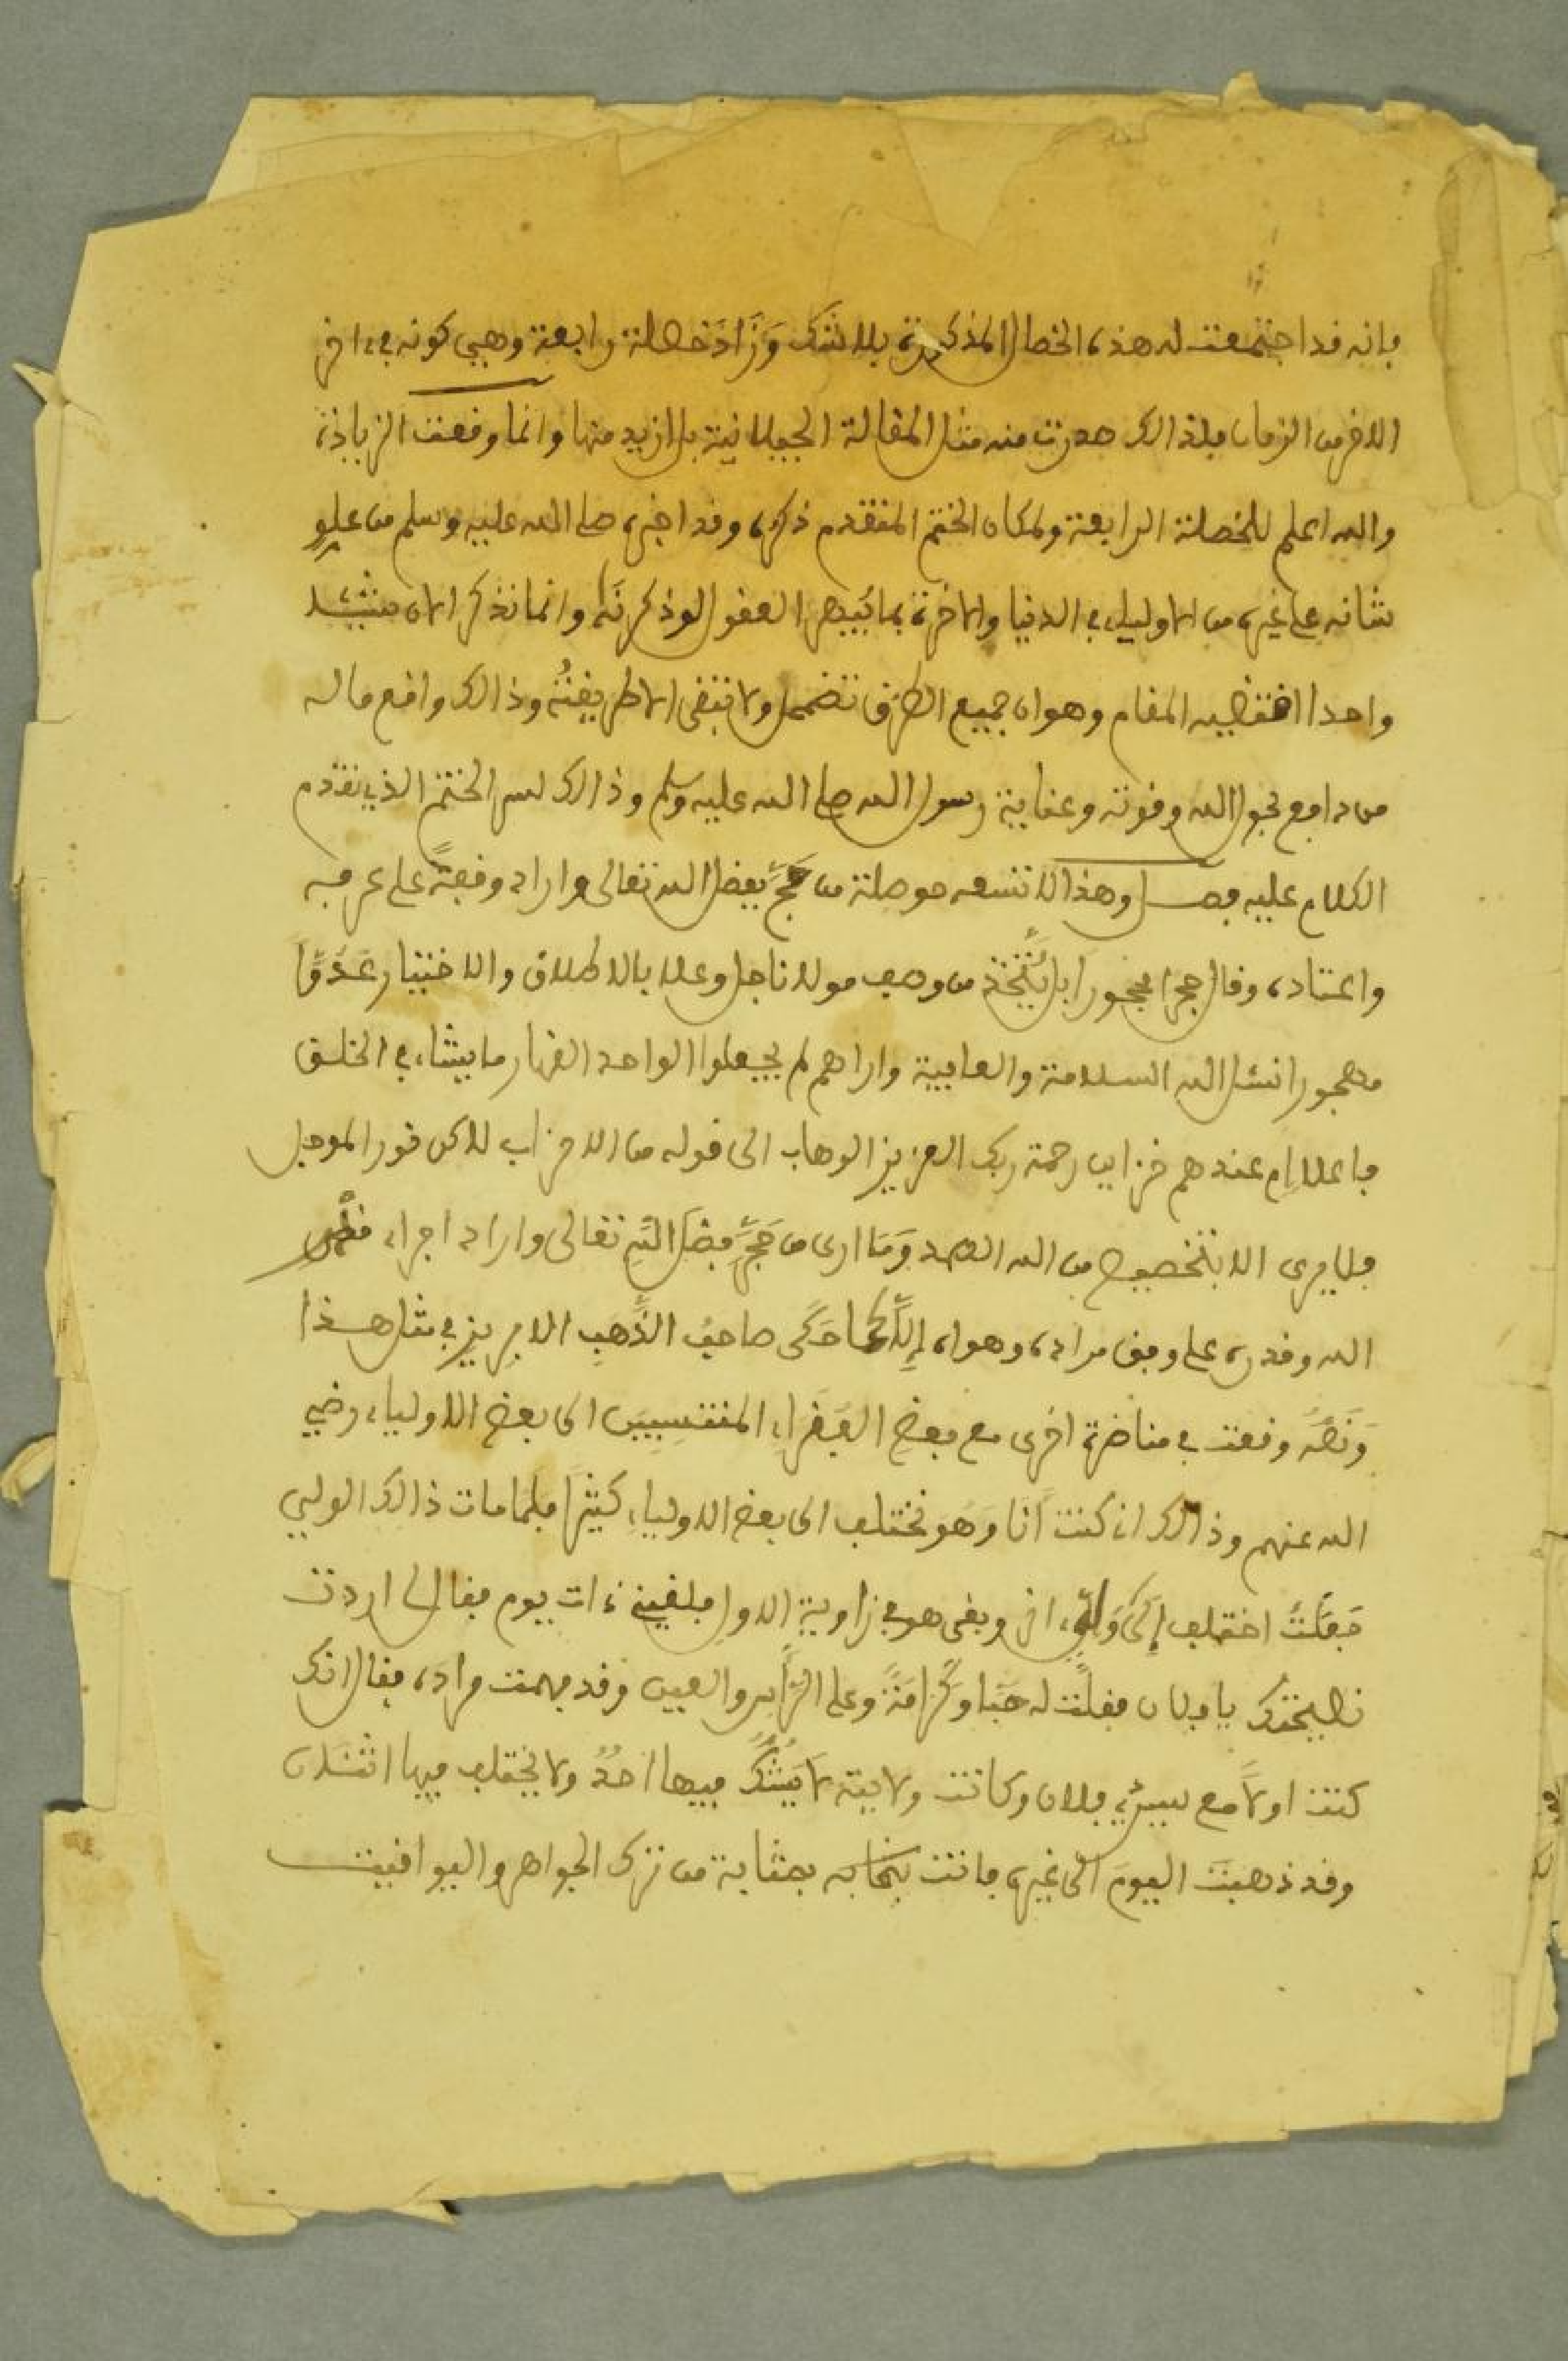 فإنه قد اجتمعت له هذه الخصال المذكورة بلا شك وَزَادَ خصلة رابعة وهي كونه في ءاخر
الاخر من الزمان فلذالك صدرت منه مثل المقالة الجيلانية بل ازيد منها وانما وقعت الزيادة
والله اعلم للخصلة الرابعة ولمكان الختم المتقدم ذكره وقد اخبره صلى الله عليه وسلم من علو
شانه على غيره من الاولياء في الدنيا والاخرة بما يبهر العقول لو ذكرته وانما نذكر الان شيئا
واحدا اقتضيه المقام وهو ان جميع الطرق تضمحل ولا تبقى الا طريقتُه وذالك واقع ماله
من دافع بحول الله وقوته وعناية رسول الله صلى الله عليه وسلم وذالك لسر الختم الذي تقدم
الكلام عليه فصل وهذا لا تسعه حوصلة من حجَّر بفضل الله تعالى واراد وقفَهً على عرفه
واعتاده وقال حجرا محجورا بل يُتَّخذ من وصف مولانا جل وعلا بالاطلاق والاختيار عَدُوًّا
مهجورا نسئل الله السلامة والعافية واراهم لم يجعلوا الواحد القهار ما يشاء في الخلق
فاعلا ام عندهم خزاين رحمة ربك العزيز الوهاب الى قوله من الاحزاب لاكن قور الموجل
فلا يرى الا بتخصيص من الله الصمد وَمَا ارى من حَجَّر فضلَ اللهِ تعالى واراد اجراء
الله وقدره على وفق مراده وهواه إلاَّ كما حَكَى صاحبُ الذَّهبِ الابريز في مثل هذا
وَنَصُّه وقعت في مناضرة اخرى مع بعض الفقراء المنتسبين الى بعض الاولياء رضي
الله عنهم وذالك اني كنت انَا وَهو نختلف الى بعض الاولياء كثيرًا فلما مات ذالك الولي
جَعَلْتُ اختلف إِلَى وَلِيٍّ ءاخر وبقى هو في زاوية الاول فلقيني ذات يوم فقال لي اردت
نصيحتك يا فلان فقلْت له حُبًّا وَكَرَامَةً وعلى الرَّأس والعين وقد فهمت مراده فقال انك
كنت اولاً مع سيدي فلان وكانت ولايته لا يَشُكُّ فيها احدٌ ولا يختلف فيها اثنَان
وقد ذهبتَ اليومَ الى غيره فانت بذهابه بمثابة من ترك الجواهر واليواقيت